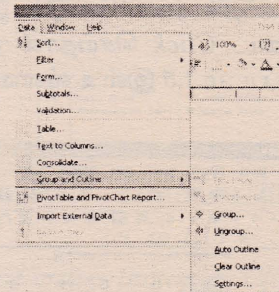 Data Window Help
Sort...
100%
Filter
Form...
Subtotals...
Validation...
Table...
Text to Columns...
Consolidate...
Group and Outline
PivotTable and PivotChart Report...
Import External Data
Group...
Ungroup...
Auto Outline
Clear Outline
Settings...